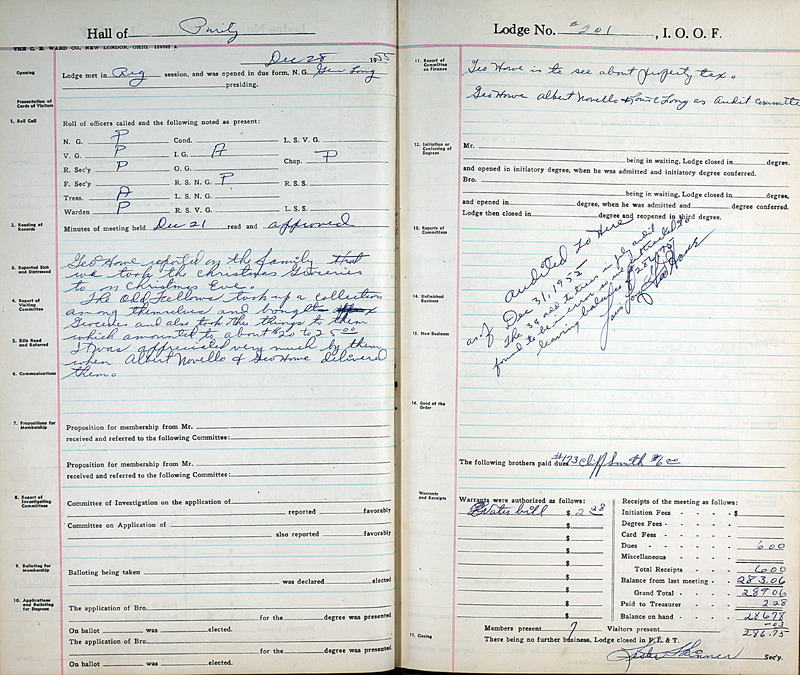 Hall of Purity
THE C. E. WARD CO., NEW LONDON, OHIO.
Dec 28 1955
Opening
Lodge met in Reg session, and was opened in due form, N. G. Geo Long
presiding.
Presentation of Cards of Visitors
1. Roll Call
Roll of officers called and the following noted as present:
N. G. P Cond. L. S. V. G.
V. G. P I. G. A Chap. P
R. Sec'y P O. G.
F. Sec'y P R. S. N. G. P R. S. S.
Treas. A L. S. N. G.
Warden P R. S. V. G. L. S. S.
2. Reading of Records
Minutes of meeting held Dec 21 read and approved
3. Reported Sick and Distressed
Geo Howe reported on the family that
we took the Christmas Groceries
to on Christmas Eve.
4. Report of Visiting Committee
The Odd Fellows took up a collection
among themselves and bought
Groceries and also took the things to them
5. Bills Read and Referred
which amounted to about $20 to 25.00
It was appreciated very much by them
when Albert Novello & Geo Howe delivered
6. Communications
them.
7. Propositions for Membership
Proposition for membership from Mr.
received and referred to the following Committee:
Proposition for membership from Mr.
received and referred to the following Committee:
8. Report of Investigating Committees
Committee of Investigation on the application of
reported favorably
Committee on Application of
also reported favorably
9. Balloting for Membership
Balloting being taken
was declared elected
10. Applications and Balloting for Degrees
The application of Bro.
for the degree was presented
On ballot was elected.
The application of Bro.
for the degree was presented
On ballot was elected.
Lodge No. #201, I. O. O. F.
11. Report of Committee on Finance
Geo Howe is to see about property tax.
Geo Howe Albert Novello & Long as Audit committee
12. Initiation or Conferring of Degrees
Mr.
being in waiting, Lodge closed in degree,
and opened in initiatory degree, when he was admitted and initiatory degree conferred.
Bro.
being in waiting, Lodge closed in degree,
and opened in degree, when he was admitted and degree conferred.
Lodge then closed in degree and reopened in third degree.
13. Reports of Committees
Audited To Here
as of Dec 31, 1955
The 3¢ add to trea in july audit
found to be in error is subtracted to
leaving balance of 286.75
Geo Howe
14. Unfinished Business
15. New Business
16. Good of the Order
The following brothers paid dues #173 Cliff Smith $6.00
Warrants and Receipts
Warrants were authorized as follows:
Water bill $ 2 28
$
$
$
$
$
$
$
$
Receipts of the meeting as follows:
Initiation Fees $
Degree Fees
Card Fees
Dues 6 00
Miscellaneous
Total Receipts 6 00
Balance from last meeting 283.06
Grand Total 289 06
Paid to Treasurer 2 28
Balance on hand 286 78
-03
286.75
Members present 7 Visitors present
17. Closing
There being no further business, Lodge closed in F. L. & T.
Lester Skinner Sec'y.